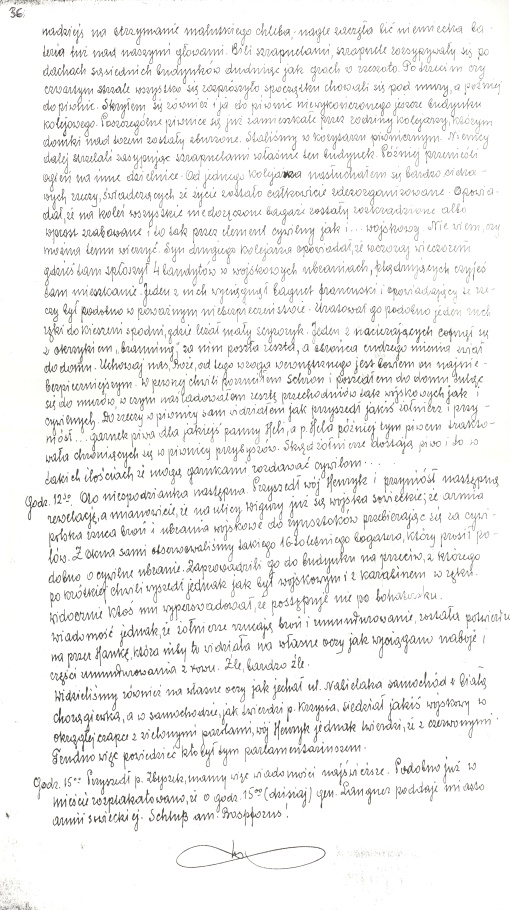 36.
nadzieję na otrzymanie malutkiego chleba, nagle zaczęła bić niemiecka ba-
teria tuż nad naszymi głowami. Bili szrapnelami, szrapnele rozsypywały się po
dachach sąsiednich budynków dudniąc jak groch w rzeszoto. Po trzecim czy
czwartym strzale wszystko się rozproszyło z początku chowali się pod mury, a później
do piwnic. Skryłem się również i ja do piwnic niewykończonego jeszcze budynku
kolejowego. Poszczególne piwnice są już zamieszkałe przez rodziny kolejarzy, którym
domki nad torem zostały zburzone. Staliśmy w korytarzu piwnicznym. Niemcy
dalej strzelali zasypując szrapnelami właśnie ten budynek. Później przenieśli
ogień na inne dzielnice. Od jednego kolejarza nasłuchałem się bardzo cieka-
wych rzeczy, świadczących że życie zostało całkowicie zdezorganizowane. Opowia-
dał, że na kolei wszystkie niedoręczone bagaże zostały rozkradzione albo
wprost zrabowane i to tak przez element cywilny jak i... wojskowy. Nie wiem, czy
można temu wierzyć. Syn drugiego kolejarza opowiadał, że wczoraj wieczorem
gdzieś tam spłoszył 4 bandytów w wojskowych ubraniach, plądrujących czyjeś
tam mieszkanie. Jeden z nich wyciągnął bagnet francuski i opowiadający te rze-
czy był podobno w poważnym niebezpieczeństwie. Uratował go podobno jeden ruch
ręki do kieszeni spodni, gdzie leżał mały scyzoryk. Jeden z nacierających cofnął się
z okrzykiem "brauning", za nim poszła reszta, a obrońca cudzego mienia wiał
do domu. Uchowaj nas, Boże, od tego wroga wewnętrznego jest bowiem on najnie-
bezpieczniejszym. W pewnej chwili porzuciłem schron i poszedłem do domu tuląc
się do murów w czym naśladowałem resztę przechodniów tak wojskowych jak i
cywilnych. Do rzeczy w piwnicy sam widziałem jak przyszedł jakiś żołnierz i przy-
niósł... garnek piwa dla jakiejś panny Heli, a p. Hela później tym piwem traktow-
wała chroniących się w piwnicy przybyszów. Skąd żołnierze dostają piwo i to w
takich ilościach, że mogą garnkami rozdawać cywilom....
Godz. 12³⁰ Oto niespodzianka następna. Przyszedł wój Henryk i przyniósł następną
rewelację, a mianowicie, że na ulicy Wigury już są wojska sowieckie, że armia
polska rzuca broń i ubrania wojskowe do rynsztoków przebierając się za cywi-
lów. Z okna sami obserwowaliśmy takiego 16-toletniego bogatera, który prosił po-
dobno o cywilne ubranie. Zaprowadzili go do budynku na przeciw, z którego
po krótkiej chwili wyszedł jednak jak był wojskowym i z karabinem w ręku.
Widocznie ktoś mu wyperswadował, że postępuje nie po bohatersku.
Wiadomość jednak, że żołnierze rzucają broń i umundurowanie, została potwierdzo
na przez Hankę, która niby to widziała na własne oczy jak wyciągano naboje i
części umundurowania z rowu. Źle, bardzo źle.
Widzieliśmy również na własne oczy jak jechał ul. Nabielaka samochód z białą
chorągiewką, a w samochodzie, jak twierdzi p. Krzysia, siedział jakiś wojskowy w
okrągłej czapce z zielonymi paskami, wój Henryk jednak twierdzi, że z czerwonymi.
Trudno więc powiedzieć kto był tym parlamentariuszem.
Godz. 15⁰⁰ Przyszedł p. Zbyszek, mamy więc wiadomości najświeższe. Podobno już w
mieście rozplakatowano, że o godz. 15⁰⁰ (dzisiaj) gen. Langner poddaje miasto
armii sowieckiej. Schluß am Bosphorus!